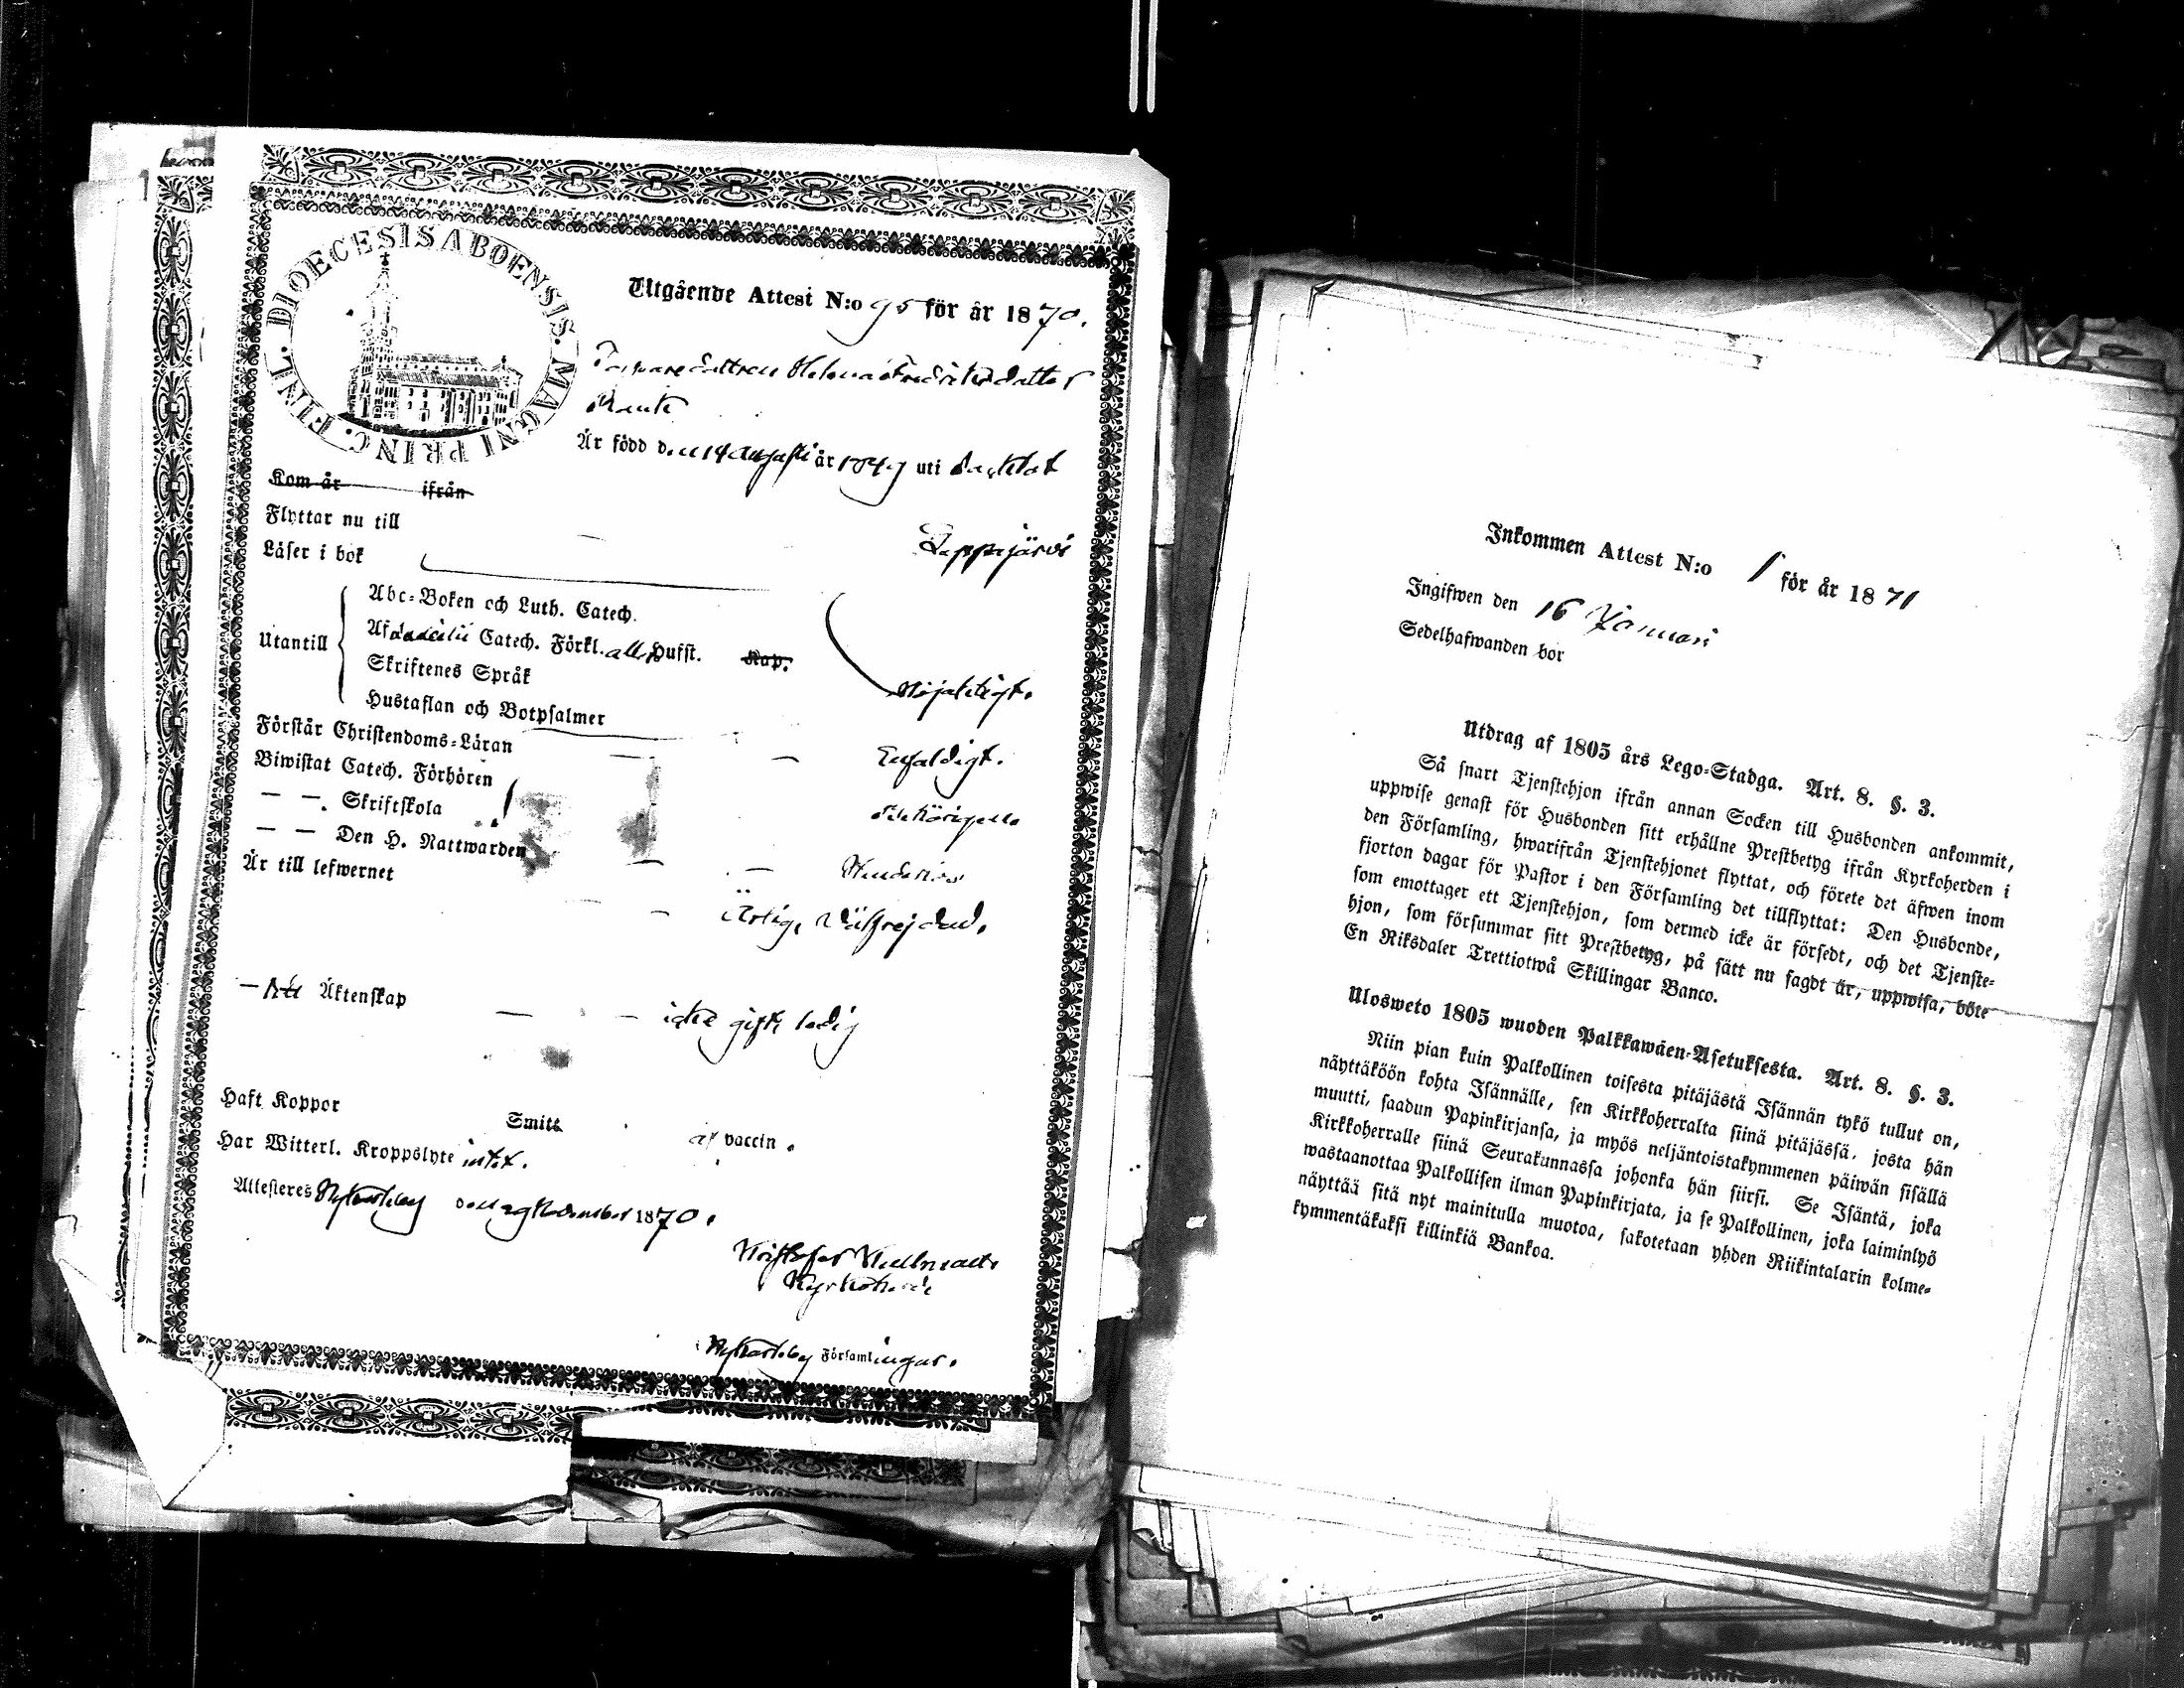 DIOECESIS ABOENSIS. MAGNI PRINC. FINL.
Utgående Attest N:o 95 för år 1870.
Helena Fredriksdotter
Är född den 14 Augusti år 1849 uti
Kom år ifrån
Flyttar nu till Lappajärvi
Läser i bok
Utantill
Abc-Boken och Luth. Catech.
Af Catech. Förkl. alla Hufst. Kap.
Skriftenes Språk
Hustaflan och Botpsalmer Nöjaktigt.
Förstår Christendoms-Läran — Enfaldigt.
Biwistat Catech. Förhören
— — Skriftskola
— — Den H. Nattwarden
Är till lefwernet — — Ärlig, Välfrejdad.
— Äktenskap — — icke gift, ledig
Haft Koppor Smitt af vaccin.
Har Witterl. Kroppslyte intet.
Attesteras Nykarleby den 29 November 1870.
Kyrkoherde
Nykarleby Församlingar.
Inkommen Attest N:o 1 för år 1871
Ingifwen den 16 Januari
Sedelhafwanden bor
Utdrag af 1805 års Lego-Stadga. Art. 8. §. 3.
Så snart Tjenstehjon ifrån annan Socken till Husbonden ankommit,
uppwise genast för Husbonden sitt erhållne Prestbetyg ifrån Kyrkoherden i
den Församling, hwarifrån Tjenstehjonet flyttat, och förete det äfwen inom
fjorton dagar för Pastor i den Församling det tillflyttat: Den Husbonde,
som emottager ett Tjenstehjon, som dermed icke är försedt, och det Tjenste-
hjon, som försummar sitt Prestbetyg, på sätt nu sagdt är, uppwisa, böte
En Riksdaler Trettiotwå Skillingar Banco.
Ulosweto 1805 wuoden Palkkawäen-Asetuksesta. Art. 8. §. 3.
Niin pian kuin Palkollinen toisesta pitäjästä Isännän tykö tullut on,
näyttäköön kohta Isännälle, sen Kirkkoherralta siinä pitäjässä, josta hän
muutti, saadun Papinkirjansa, ja myös neljäntoistakymmenen päiwän sisällä
Kirkkoherralle siinä Seurakunnassa johonka hän siirsi. Se Isäntä, joka
wastaanottaa Palkollisen ilman Papinkirjata, ja se Palkollinen, joka laiminlyö
näyttää sitä nyt mainitulla muotoa, sakotetaan yhden Riikintalarin kolme-
kymmentäkaksi killinkiä Bankoa.